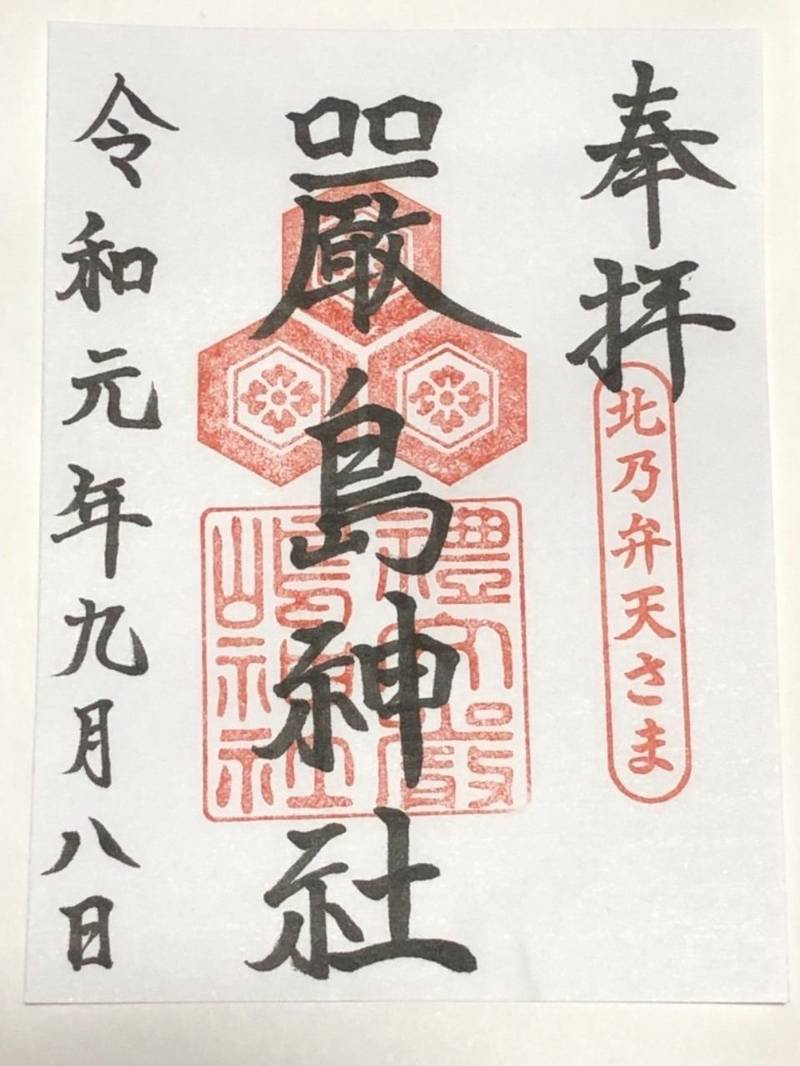 奉拝
北乃弁天さま
嚴島神社
禮文嚴
嶋神社
令和元年九月八日